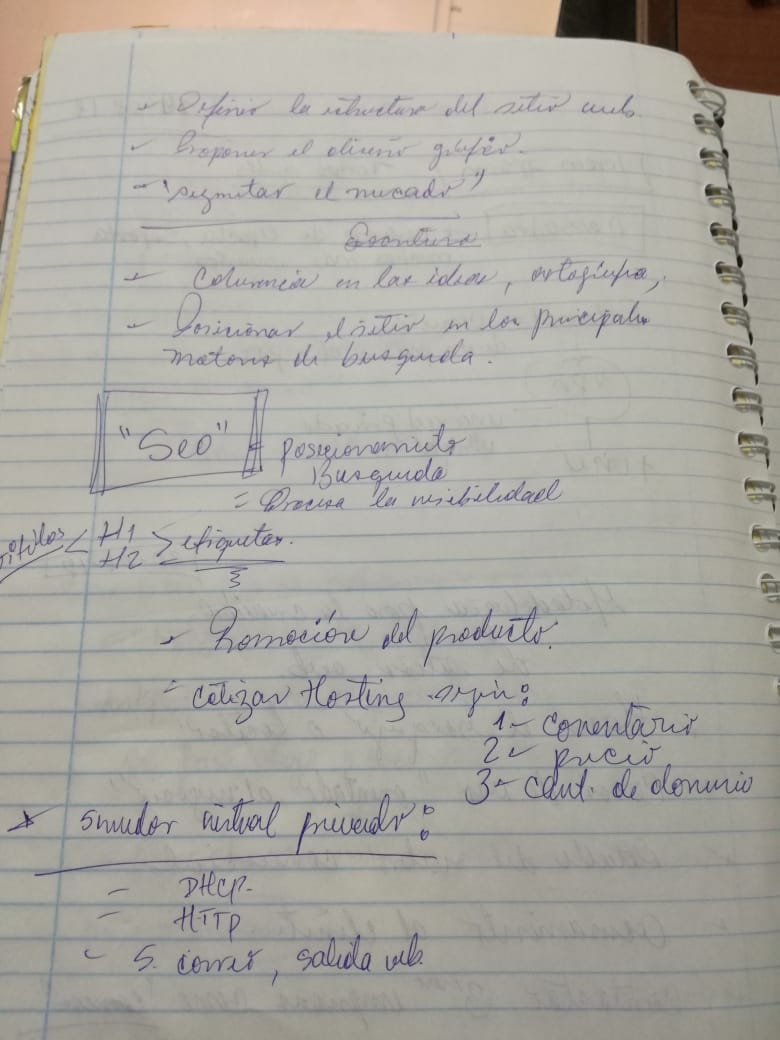 - Definir la estructura del sitio web.
- Proponer el diseño gráfico.
- "segmentar el mercado"
Escritura
- Coherencia en las ideas, ortografía,
- Posicionar el sitio en los principales
motores de busqueda.
"Seo" = posicionamiento
Busqueda
= la visibilidad
Titulos < H1
H2 > etiquetas.
3
- Promoción del producto.
- cotizar Hosting según:
1- comentário
2- precio
3- cant. de dominio
* servidor virtual privado:
- DHCP.
- HTTP
- S. correo, salida web.